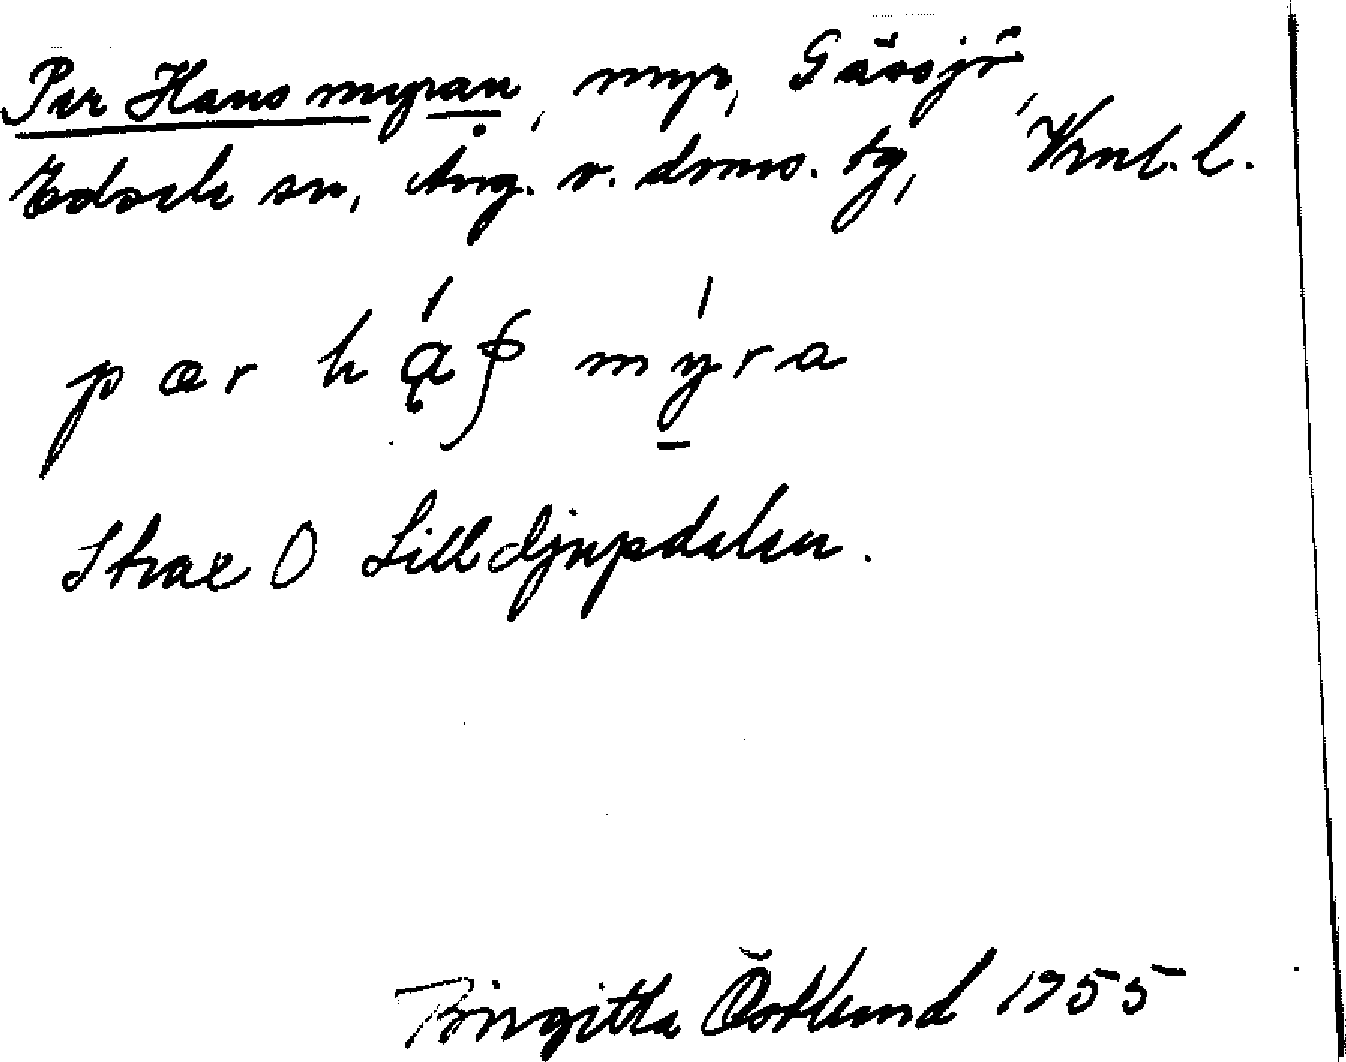 Per Hansmyran, myr, Gåssjö,
Edsele sn, Ång. v. doms. tg, Vrnl. l.
pær h myra
Strax O Lilldjupdalen.
Birgitta Östlund 1955